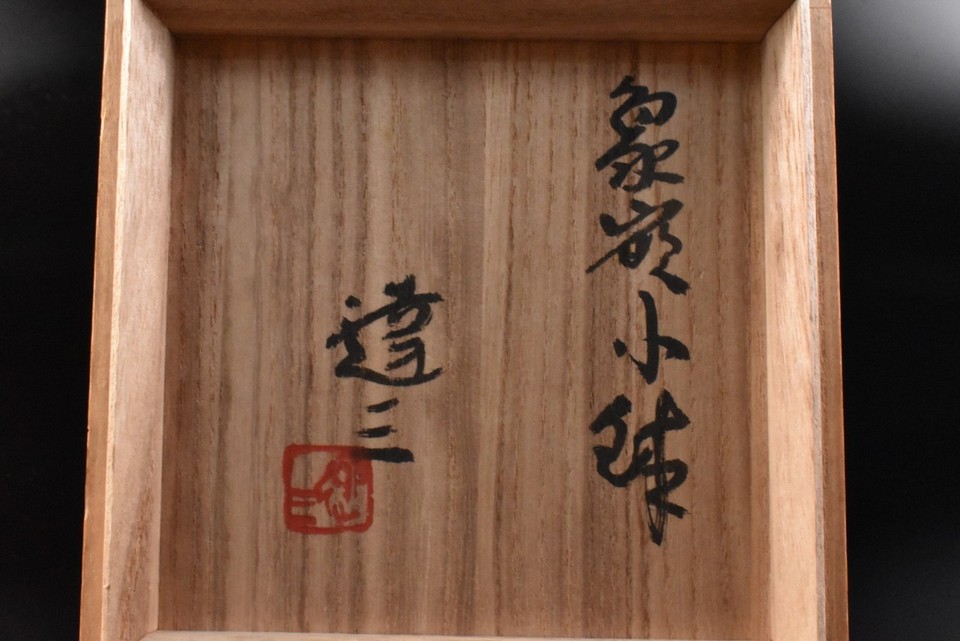 象嵌小鉢
達三